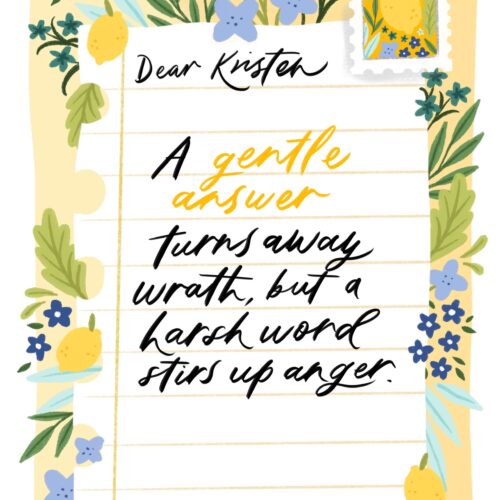 Dear Kristen
A gentle
answer
turns away
wrath, but a
harsh word
stirs up anger.